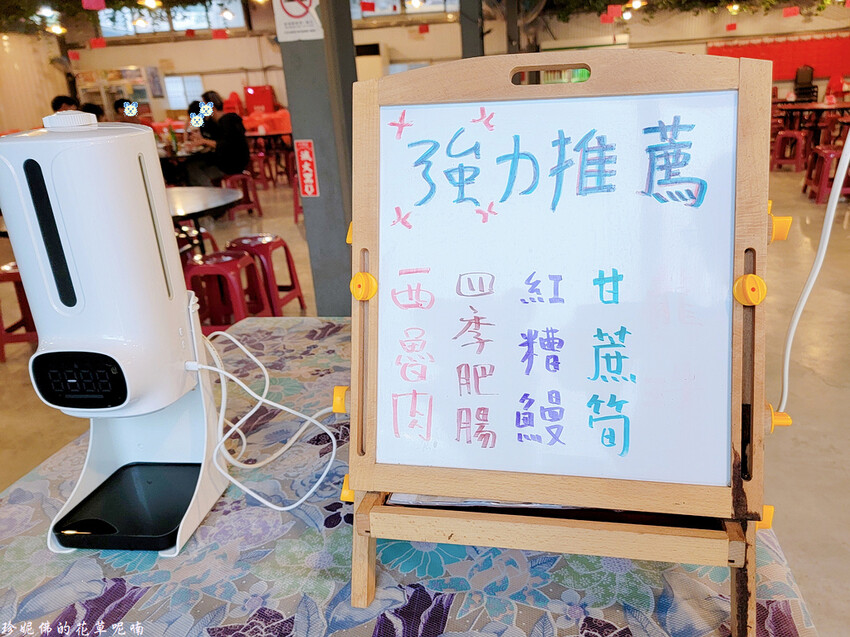 強力推薦
甘蔗筍
紅糟鰻
四季肥腸
西魯肉
珍妮佛的花草呢喃